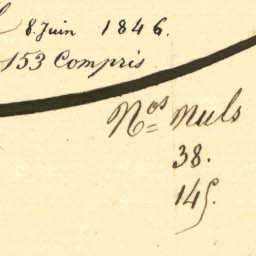 8 Juin 1846.
153 Compris
Nos Nuls
38.
149.